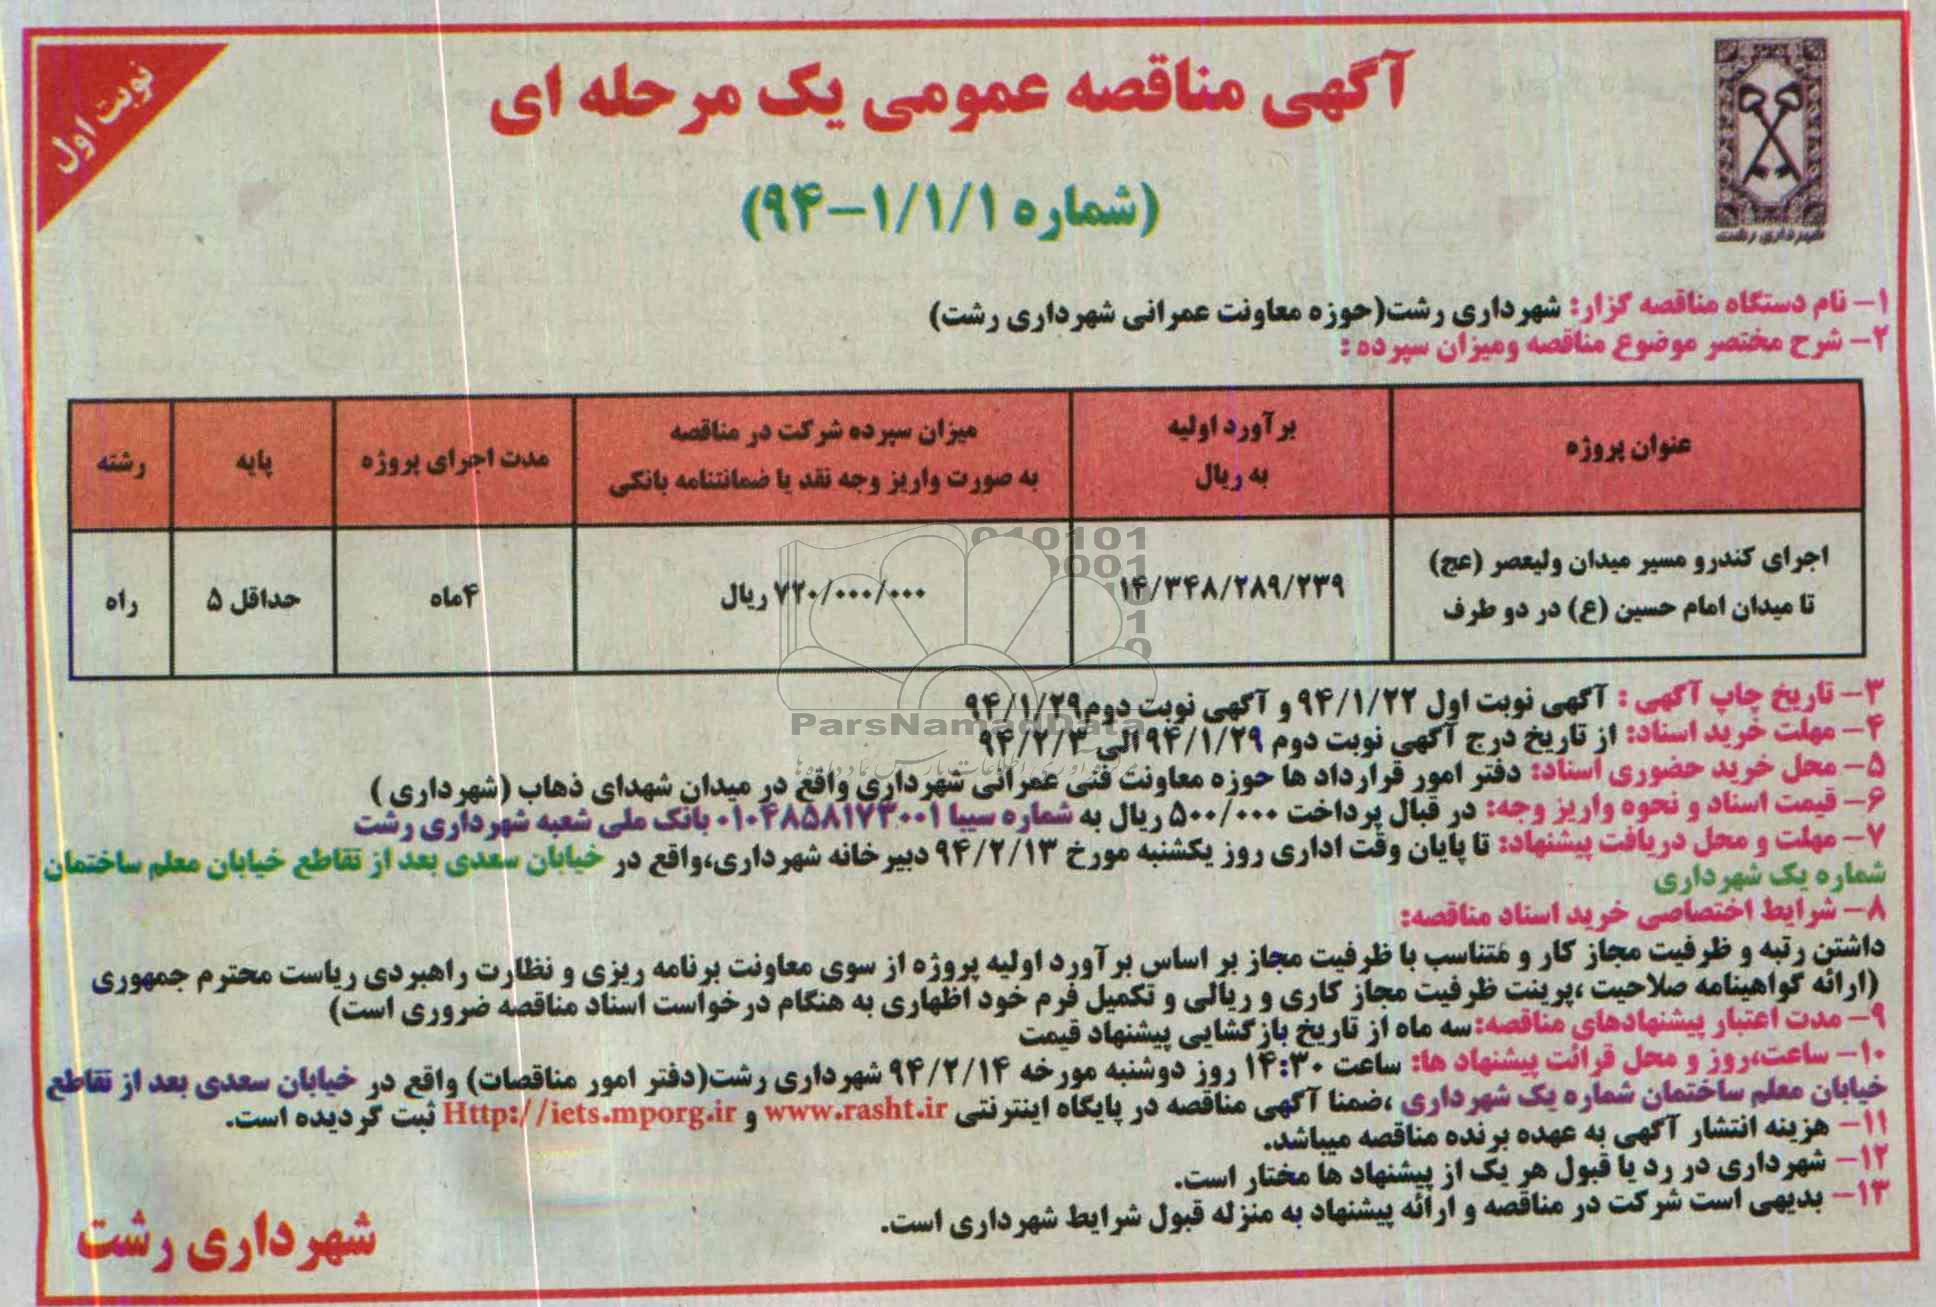 نوبت اول
آگهی مناقصه عمومی یک مرحله ای
(شماره ۱/۱/۱-۹۴)
شهرداری رشت
۱- نام دستگاه مناقصه گزار: شهرداری رشت(حوزه معاونت عمرانی شهرداری رشت)
۲- شرح مختصر موضوع مناقصه ومیزان سپرده :
عنوان پروژه
برآورد اولیه
به ریال
میزان سپرده شرکت در مناقصه
به صورت واریز وجه نقد یا ضمانتنامه بانکی
مدت اجرای پروژه
پایه
رشته
اجرای کندرو مسیر میدان ولیعصر (عج)
تا میدان امام حسین (ع) در دو طرف
۱۴/۳۴۸/۲۸۹/۲۳۹
۷۲۰/۰۰۰/۰۰۰ ریال
۴ماه
حداقل ۵
راه
۳- تاریخ چاپ آگهی : آگهی نوبت اول ۹۴/۱/۲۲ و آگهی نوبت دوم۹۴/۱/۲۹
ParsNamadData
۴- مهلت خرید اسناد: از تاریخ درج آگهی نوبت دوم ۹۴/۱/۲۹ الی ۹۴/۲/۳
۵- محل خرید حضوری اسناد: دفتر امور قرارداد ها حوزه معاونت فنی عمرانی شهرداری واقع در میدان شهدای ذهاب (شهرداری )
۶- قیمت اسناد و نحوه واریز وجه: در قبال پرداخت ۵۰۰/۰۰۰ ریال به شماره سیبا ۰۱۰۴۸۵۸۱۷۳۰۰۱ بانک ملی شعبه شهرداری رشت
۷- مهلت و محل دریافت پیشنهاد: تا پایان وقت اداری روز یکشنبه مورخ ۹۴/۲/۱۳ دبیرخانه شهرداری،واقع در خیابان سعدی بعد از تقاطع خیابان معلم ساختمان
شماره یک شهرداری
۸- شرایط اختصاصی خرید اسناد مناقصه:
داشتن رتبه و ظرفیت مجاز کار و متناسب با ظرفیت مجاز بر اساس برآورد اولیه پروژه از سوی معاونت برنامه ریزی و نظارت راهبردی ریاست محترم جمهوری
(ارائه گواهینامه صلاحیت ،پرینت ظرفیت مجاز کاری و ریالی و تکمیل فرم خود اظهاری به هنگام درخواست اسناد مناقصه ضروری است)
۹- مدت اعتبار پیشنهادهای مناقصه:سه ماه از تاریخ بازگشایی پیشنهاد قیمت
۱۰- ساعت،روز و محل قرائت پیشنهاد ها: ساعت ۱۴:۳۰ روز دوشنبه مورخه ۹۴/۲/۱۴ شهرداری رشت(دفتر امور مناقصات) واقع در خیابان سعدی بعد از تقاطع
خیابان معلم ساختمان شماره یک شهرداری ،ضمنا آگهی مناقصه در پایگاه اینترنتی www.rasht.ir و Http://iets.mporg.ir ثبت گردیده است.
۱۱- هزینه انتشار آگهی به عهده برنده مناقصه میباشد.
۱۲- شهرداری در رد یا قبول هر یک از پیشنهاد ها مختار است.
۱۳- بدیهی است شرکت در مناقصه و ارائه پیشنهاد به منزله قبول شرایط شهرداری است.
شهرداری رشت